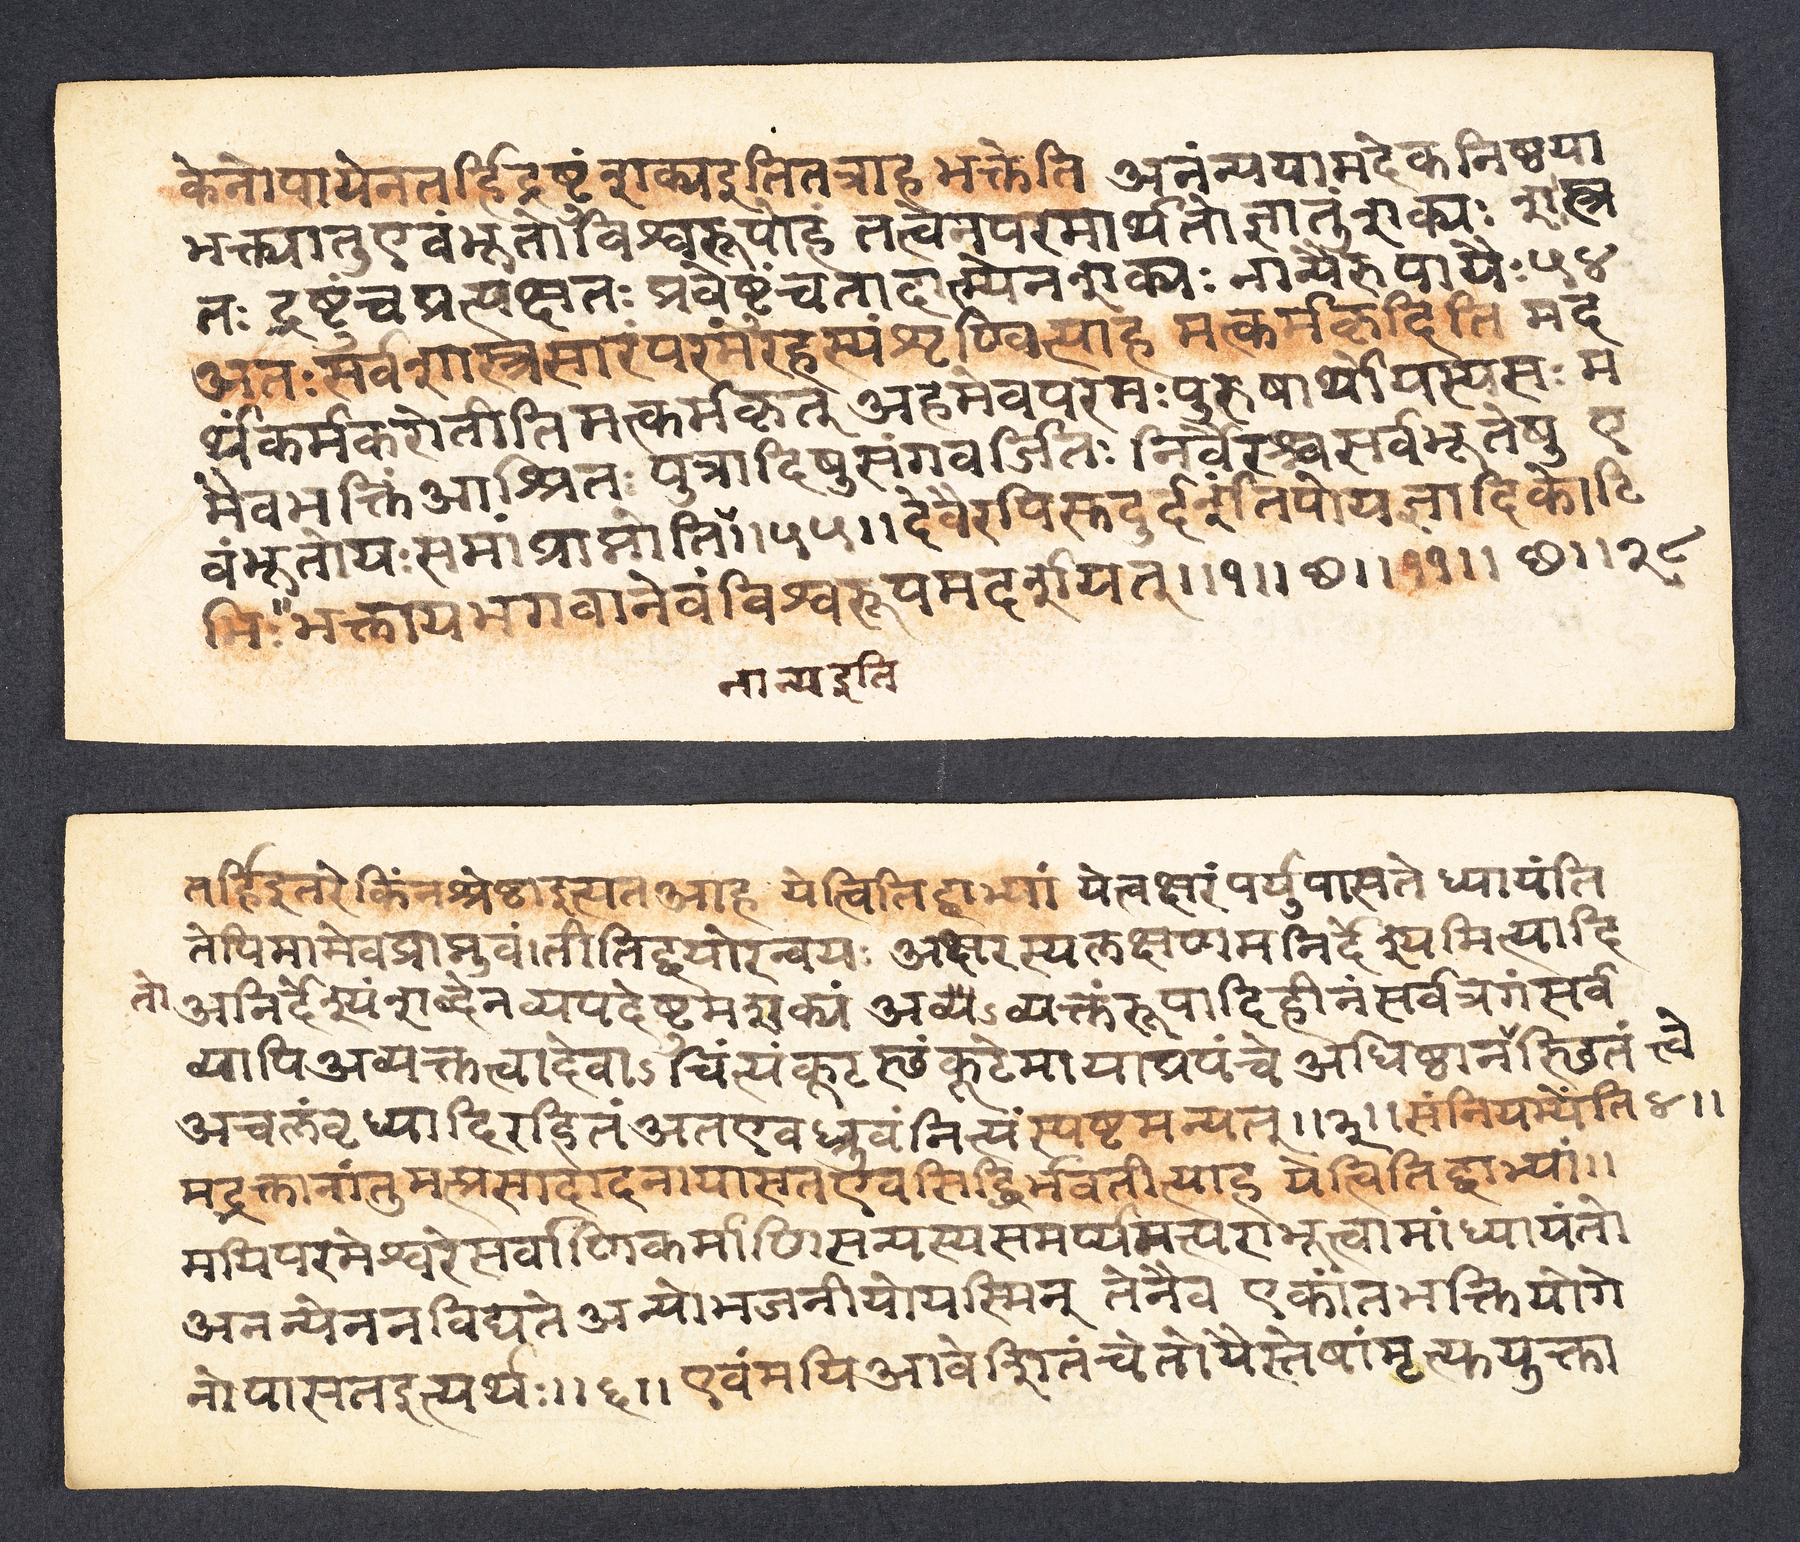 केनोपायेनतर्हिद्रष्टंशक्यइतितत्राह भक्तेति अनंन्ययामदेकनिष्ठया
भक्त्यातुएवंभूतोविश्वरूपोहं तत्वेनपरमार्थतोज्ञातुंशक्यः शास्त्र
तः द्रष्टुंचप्रत्यक्षतः प्रवेष्टुंचतादात्म्येनशक्यः नान्यैरुपायैः ५४
अतःसर्वशास्त्रसारंपरमंरहस्यंशृण्वित्याह मत्कर्मकृदिति मद
र्थंकर्मकरोतीतिमत्कर्मकृत् अहमेवपरमःपुरुषार्थोयस्यसः म
मैवभक्तिंआश्रितः पुत्रादिषुसंगवर्जितः निर्वैरश्चसर्वभूतेषु ए
वंभूतोयःसमांप्राप्नोति।।५५।।देवैरपिस्तदुर्दर्शंतिपोयज्ञादिकोटि
भिः भक्तायभगवानेवंविश्वरूपमदर्शयित्।।१।। छ।।११।। छ।।२८
नान्यइति
तर्हिइतरेकिंनश्रेष्ठाइत्यतआह येत्वितिद्वाभ्यां येत्वक्षरंपर्युपासते ध्यायंति
तेपिमामेवप्राप्नुवंतीतिद्वयोरन्वयः अक्षरस्यलक्षणमनिर्देश्यमित्यादि
तो अनिर्देश्यंशब्देनव्यपदेष्टुमशक्यं अव्यऽव्यक्तंरूपादिहीनंसर्वत्रगंसर्व
व्यापिअव्यक्तत्वादेवाऽचिंत्यंकूटस्थंकूटेमायाप्रपंचे अधिष्ठानस्थितं त्वे
अचलंवृध्यादिरहितंअतएवध्रुवंनित्यंस्पष्टमन्यत्।।३।।संनियम्येति४।।
मद्भक्तानांतुमत्प्रसादादनायासतएवसिद्धिर्भवतीत्याह येत्वितिद्वाभ्यां।।
मयिपरमेश्वरेसर्वाणिकर्माणिसन्यस्यसमर्प्यमत्पराभूत्वामांध्यायंतो
अनन्येननविद्यतेअन्योभजनीयोयस्मिन् तेनैव एकांतभक्तियोगे
नोपासतइत्यर्थः।।६।। एवंमयिआवेशितंचेतोयैस्तेषांमृत्य्तयुक्ता